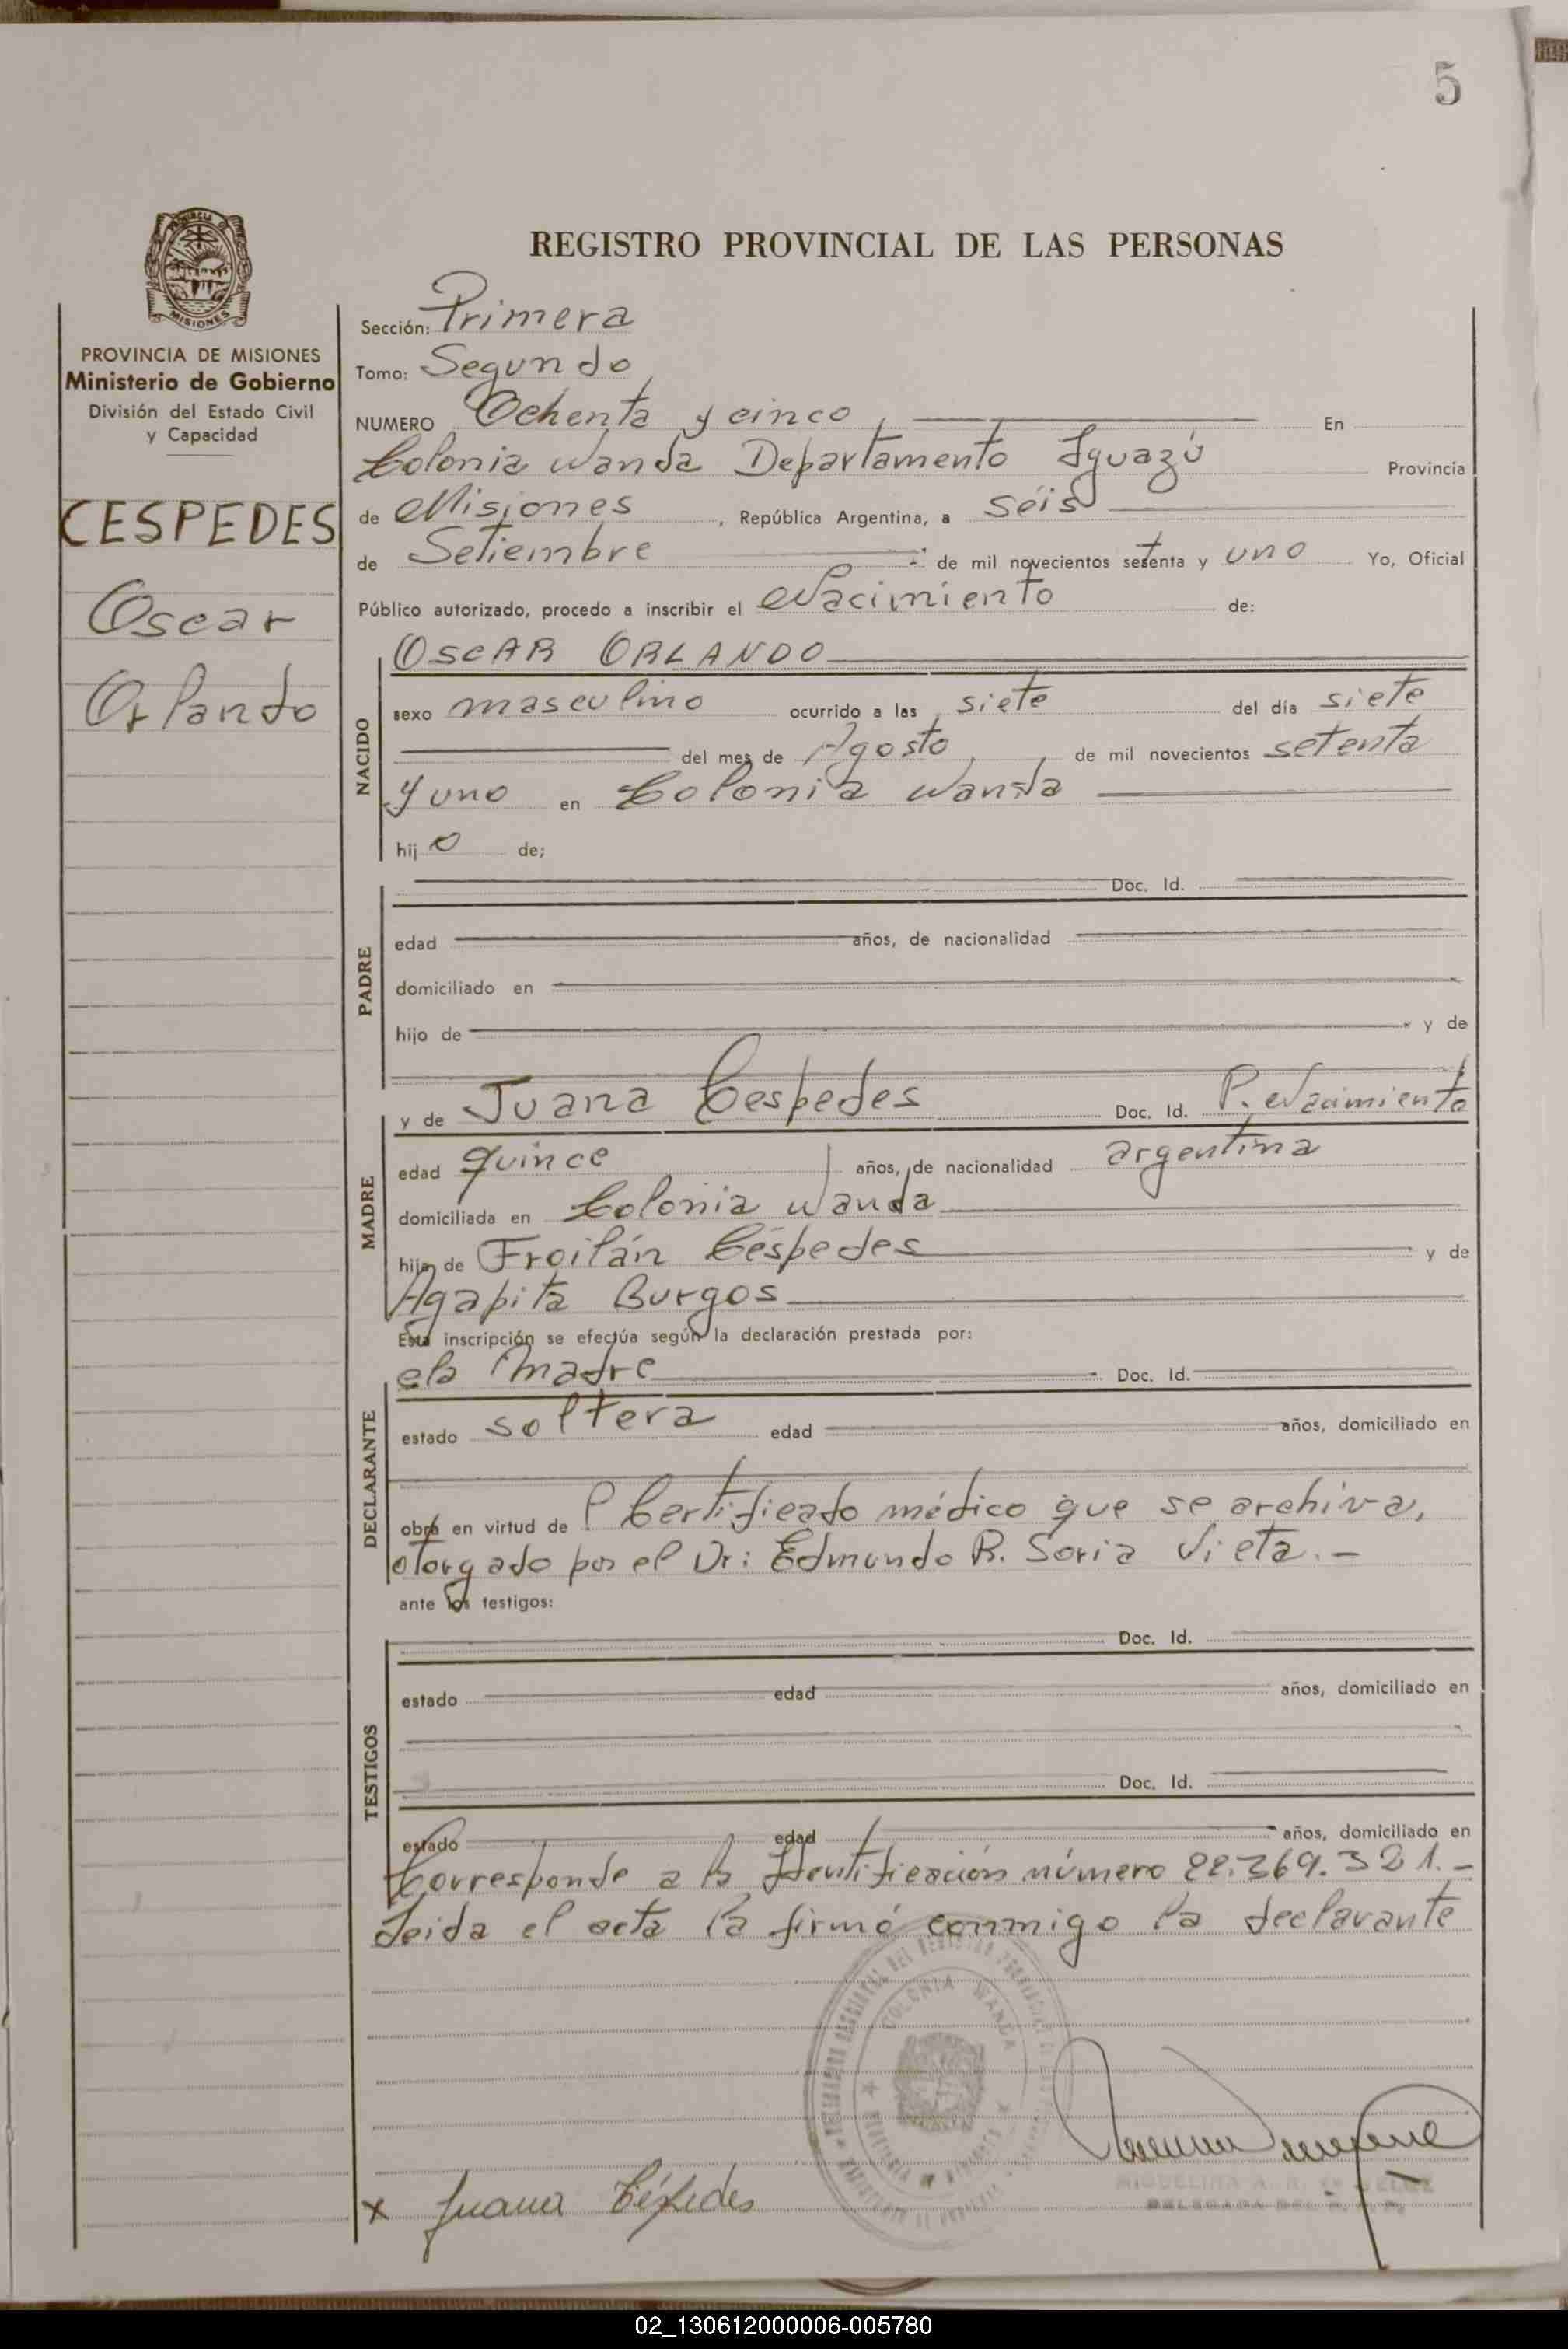 5
PROVINCIA
MISIONES
PROVINCIA DE MISIONES
Ministerio de Gobierno
División del Estado Civil
y Capacidad
CESPEDES
Oscar
Orlando
REGISTRO PROVINCIAL DE LAS PERSONAS
Sección: Primera
Tomo: Segundo
NUMERO Ochenta y cinco, En
Colonia Wanda Departamento Iguazú Provincia
de Misiones, República Argentina, a seis
de Setiembre de mil novecientos setenta y uno Yo, Oficial
Público autorizado, procedo a inscribir el Nacimiento de:
NACIDO
OSCAR ORLANDO
sexo masculino ocurrido a las siete del día siete
del mes de Agosto de mil novecientos setenta
y uno en Colonia Wanda
hijo de;
PADRE
Doc. Id.
edad años, de nacionalidad
domiciliado en
hijo de y de
MADRE
y de Juana Cespedes Doc. Id. P. Nacimiento
edad quince años, de nacionalidad argentina
domiciliada en Colonia Wanda
hija de Froilán Céspedes y de
Agapita Burgos
Esta inscripción se efectúa según la declaración prestada por:
DECLARANTE
La Madre Doc. Id.
estado soltera edad años, domiciliado en
obra en virtud de Certificado médico que se archiva,
otorgado por el Dr: Edmundo R. Soria Vieta.-
ante los testigos:
TESTIGOS
Doc. Id.
estado edad años, domiciliado en
Doc. Id.
estado edad años, domiciliado en
Corresponde a la Identificación número 22.369.321.-
Leida el acta la firmó conmigo la declarante
COLONIA WANDA
MIQUELINA A. R. de VELOZ
DELEGADA DEL R. P. P.
x Juana Céspedes
02_130612000006-005780